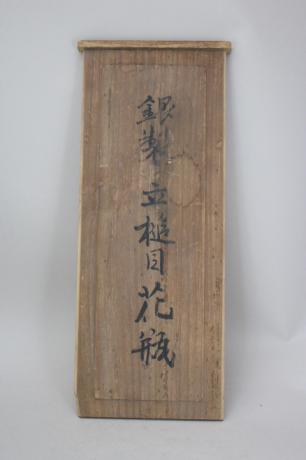 銀製立槌目花瓶